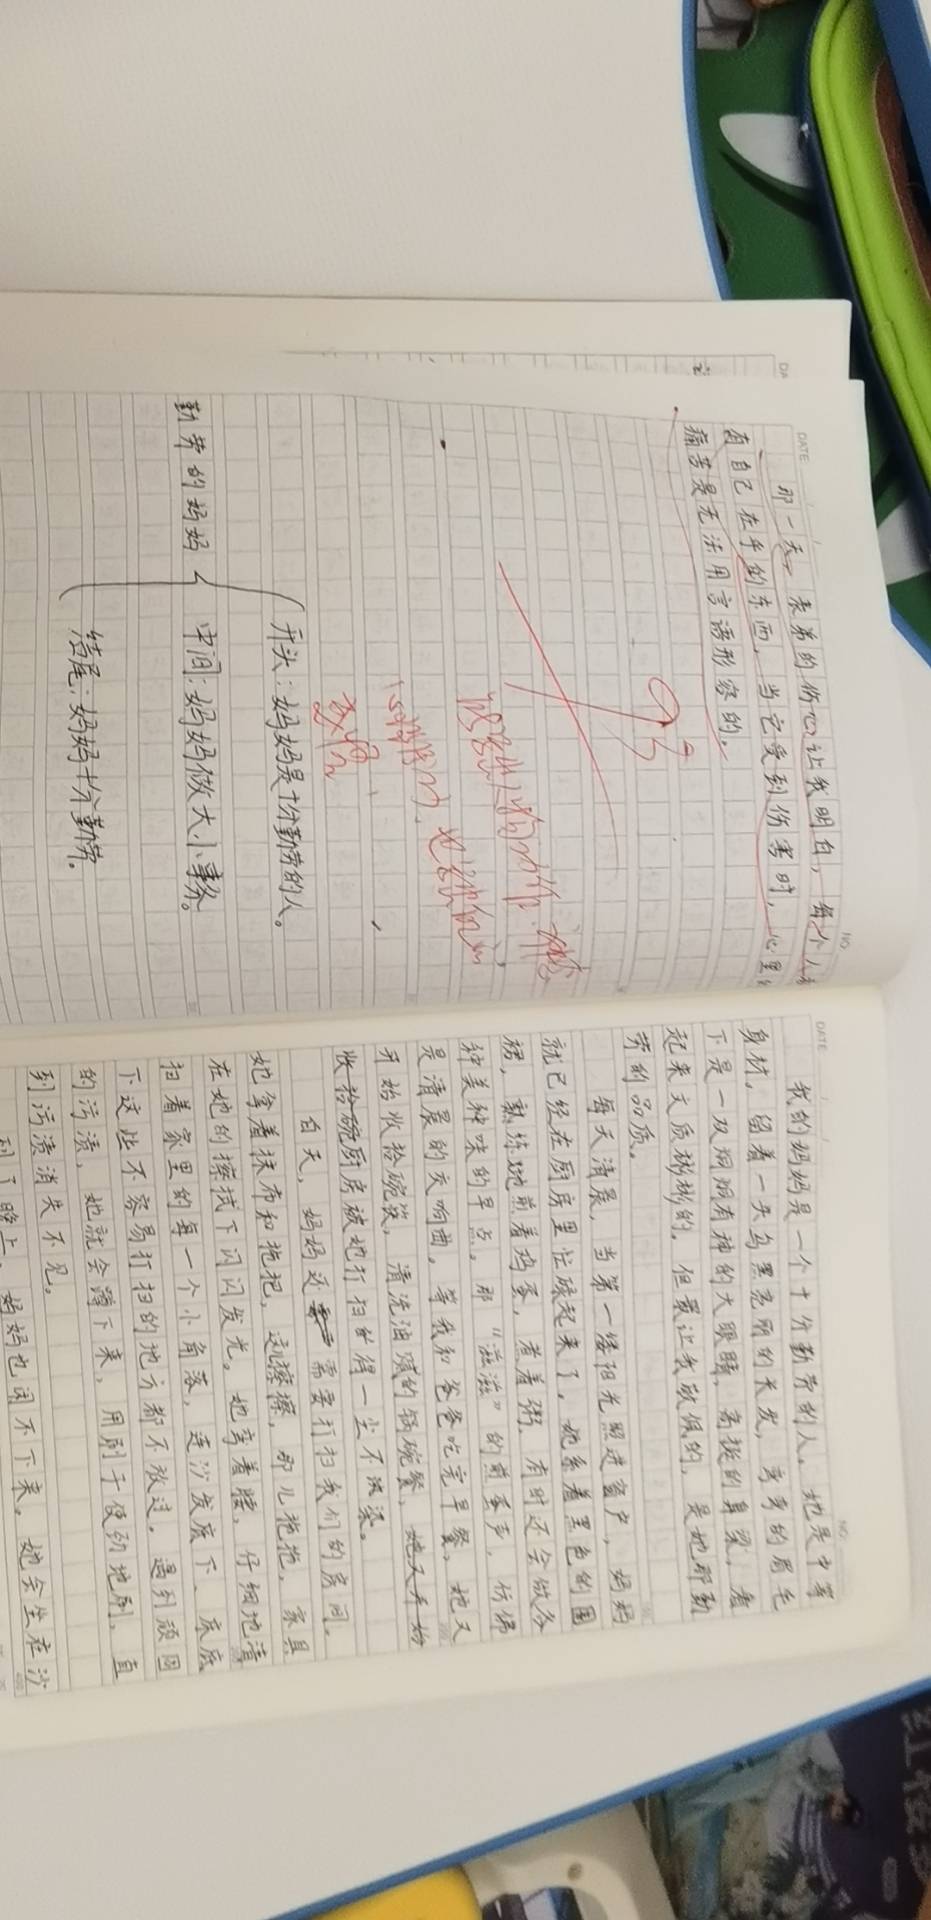 DATE
NO
那一天，表弟的伤心让我明白，每个人
有自己在乎的东西，当它受到伤害时，心里
痛苦是无法用言语形容的。
勤劳的妈妈
开头：妈妈是十分勤劳的人。
中间：妈妈做大小事务。
结尾：妈妈十分勤劳。
DATE
NO
我的妈妈是一个十分勤劳的人。她是中等
身材，留着一头乌黑亮丽的长发，弯弯的眉毛
下是一双炯炯有神的大眼睛，高挺的鼻梁，看
起来文质彬彬的。但最让我敬佩的，是她那勤
劳的品质。
每天清晨，当第一缕阳光照进窗户，妈妈
就已经在厨房里忙碌起来了。她系着黑色的围
裙，熟练地煎着鸡蛋，煮着粥，有时还会做各
种美味的早点。那“滋滋”的煎蛋声，仿佛
是清晨的交响曲。等我和爸爸吃完早餐，她又
开始收拾碗筷，清洗油腻的锅碗
收拾碗厨房被她打扫得一尘不染。
白天，妈妈还需要打扫我们的房间。
她拿着抹布和拖把，这儿擦擦，那儿拖拖，家具
在她的擦拭下闪闪发光。她弯着腰，仔细地清
扫着家里的每一个小角落，连沙发底下、床底
下这些不容易打扫的地方都不放过。遇到顽固
的污渍，她就会蹲下来，用刷子使劲地刷，直
到污渍消失不见。
到了晚上，妈妈也闲不下来。她会坐在沙